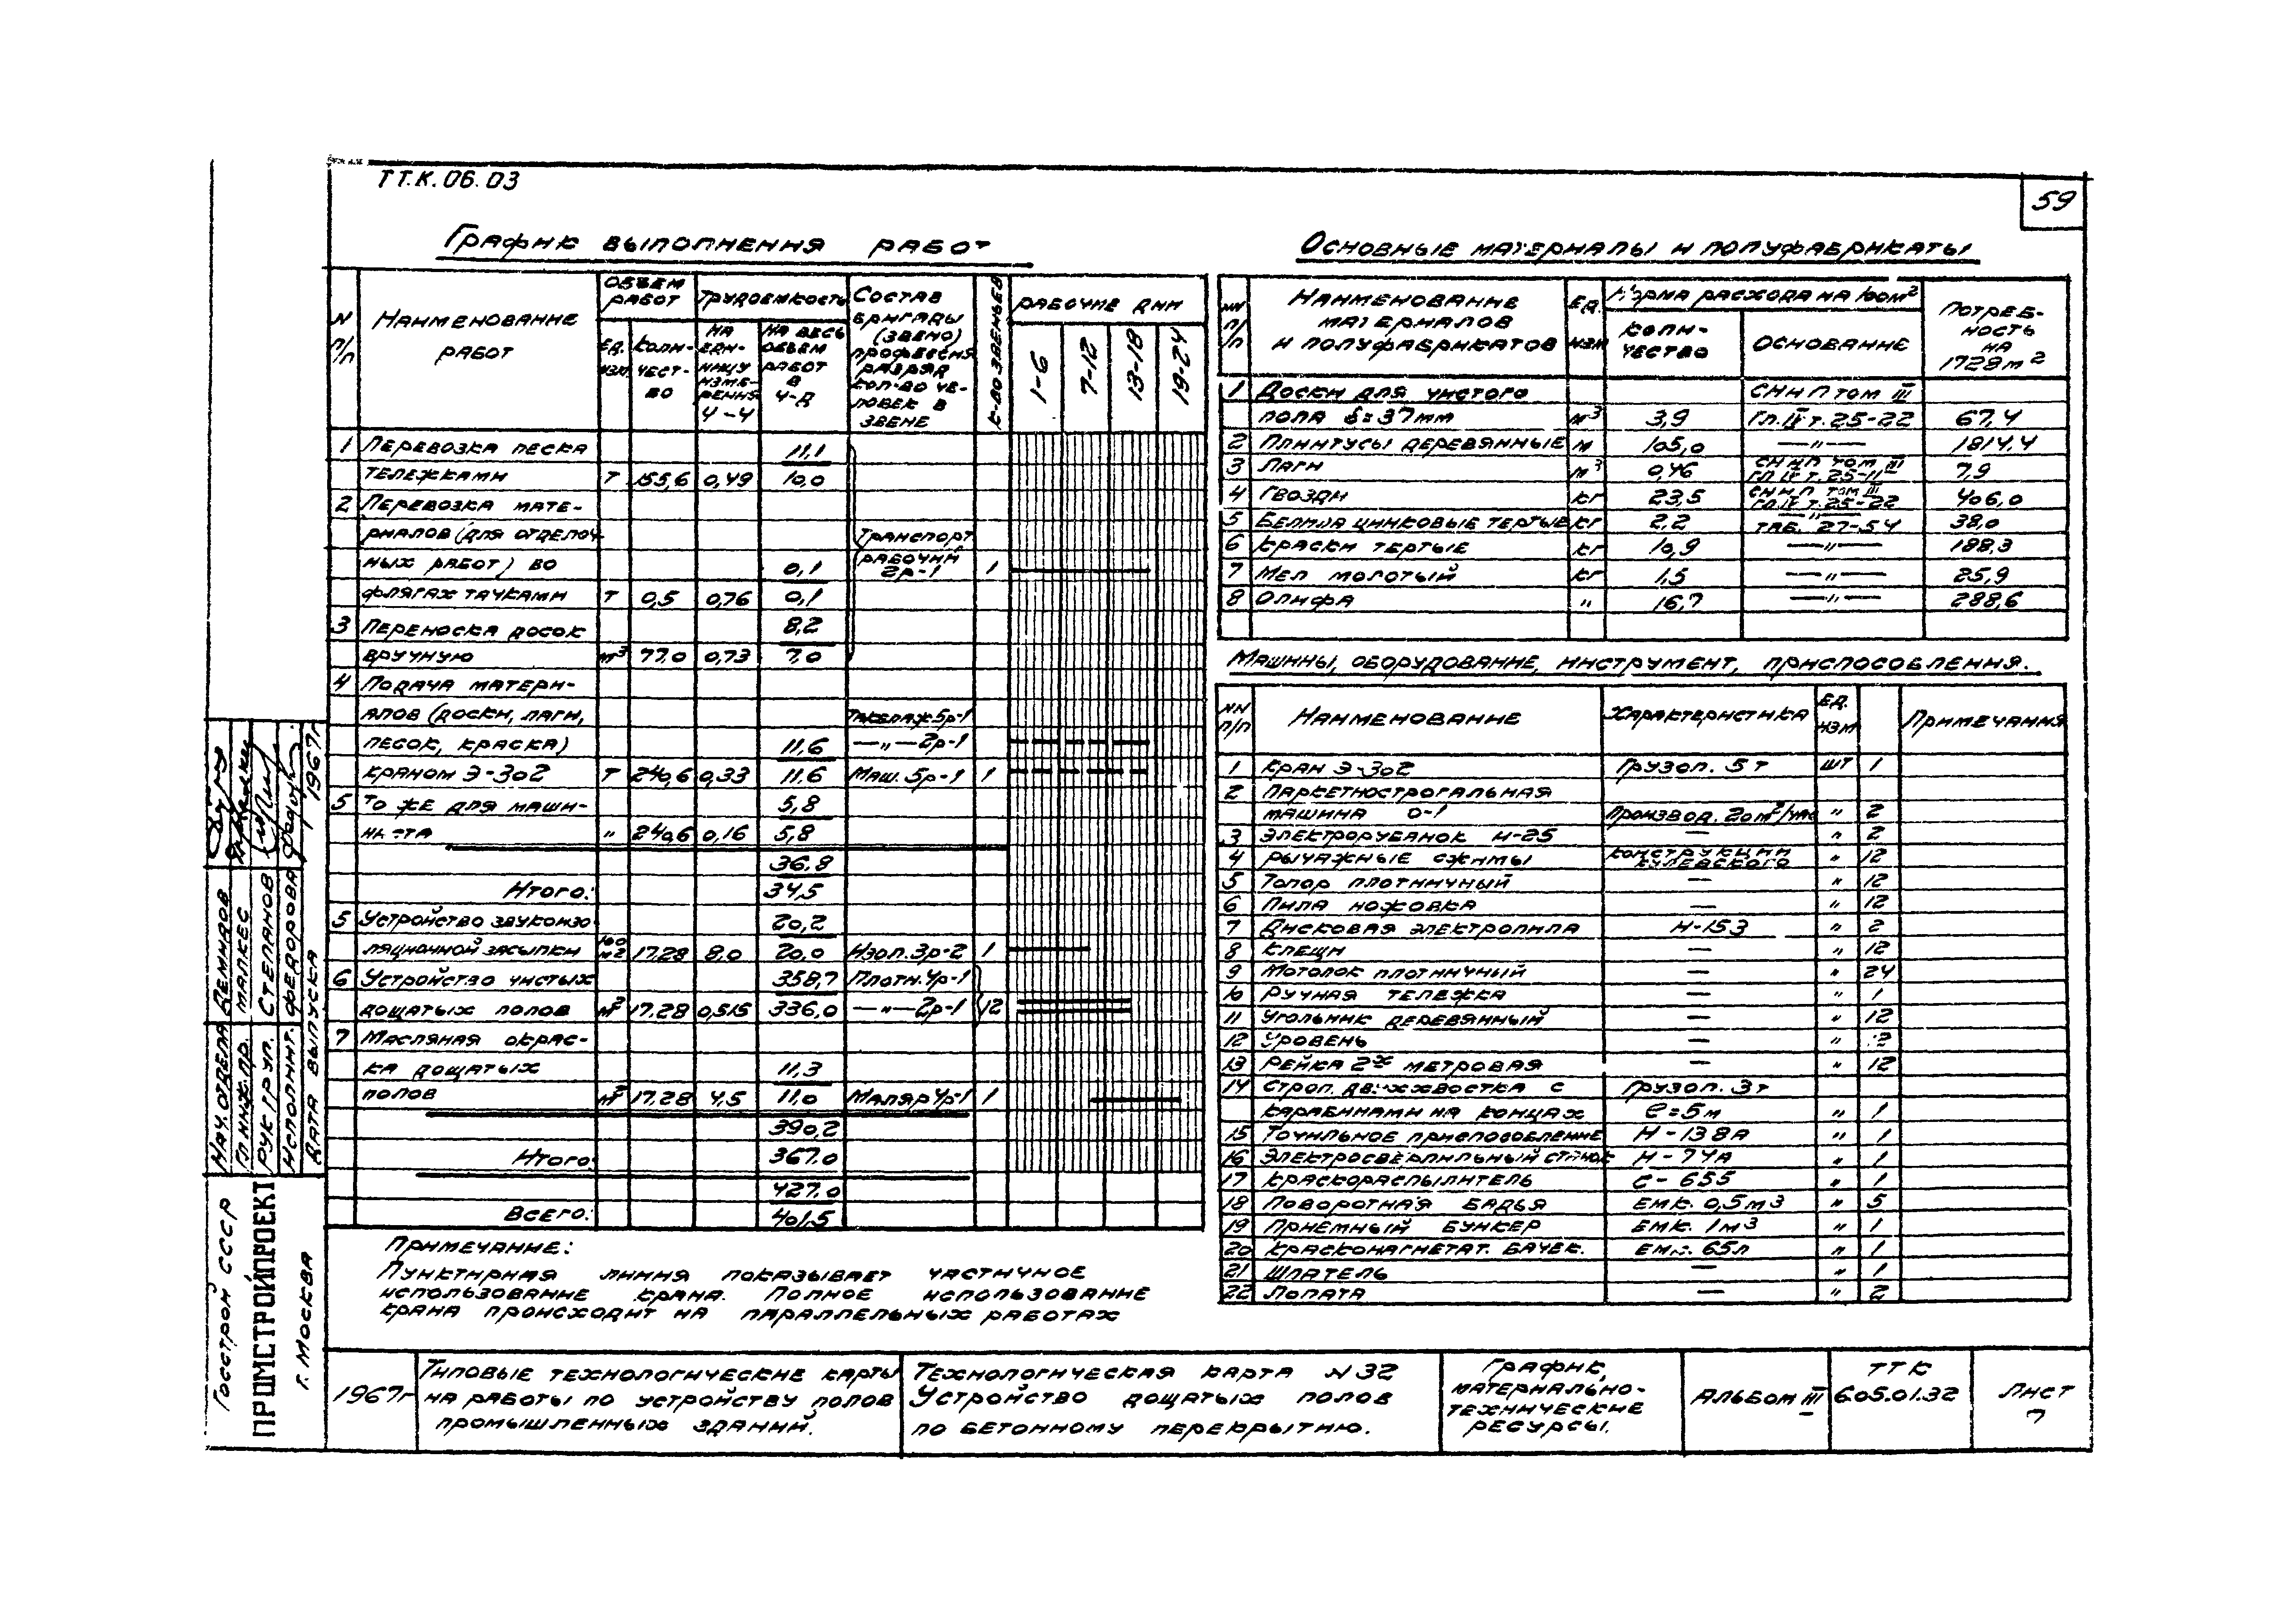 ТТ.К. 06.03
59
График выполнения работ
N п/п
Наименование работ
Объем работ
Ед. изм.
Количество
Трудоемкость
на единицу измерения ч-ч
на весь объем работ в ч-д
Состав бригады (звено) профессия разряд кол-во человек в звене
К-во звеньев
Рабочие дни
1-6
7-12
13-18
19-24
1 Перевозка песка 11,1
тележками т 155,6 0,49 10,0
2 Перевозка мате-
риалов (для отделоч-
ных работ) во 0,1
флягах тачками т 0,5 0,76 0,1
Транспорт рабочий 2р-1 1
3 Переноска досок 8,2
вручную м3 77.0 0,73 7,0
4 Подача матери-
алов (доски, лаги, Такелаж 5р-1
песок, краска) 11,6 —"— 2р-1
краном Э-302 т 240,6 0,33 11,6 Маш. 5р-1 1
5 То же для маши- 5,8
ниста " 240,6 0,16 5,8
36,8
Итого: 34,5
5 Устройство звукоизо- 20,2
ляционной засыпки 100 м2 17.28 8.0 20,0 Изол. 3р-2 1
6 Устройство чистых 358,7 Плотн. 4р-1
дощатых полов м2 17.28 0,515 336,0 —"— 2р-1 12
7 Масляная окрас-
ка дощатых 11,3
полов м2 17.28 4,5 11.0 Маляр 4р-1 1
390,2
Итого: 367.0
427.0
Всего: 401,5
Примечание:
Пунктирная линия показывает частичное
использование крана. Полное использование
крана происходит на параллельных работах
Основные материалы и полуфабрикаты
NN п/п
Наименование материалов и полуфабрикатов
Ед. изм
Норма расхода на 100м2
Количество
Основание
Потребность на 1728 м2
1 Доски для чистого СНиП том III
пола δ=37мм м3 3,9 Гл. IV т. 25-22 67,4
2 Плинтусы деревянные м 105,0 —"— 1814,4
3 Лаги м3 0,46 СНиП том III гл IV т. 25-11 7,9
4 Гвозди кг 23,5 СНиП том III гл IV т. 25-22 406,0
5 Белила цинковые тертые кг 2,2 —"— таб. 27-54 38,0
6 Краски тертые кг 10,9 —"— 188,3
7 Мел молотый кг 1,5 —"— 25,9
8 Олифа " 16,7 —"— 288,6
Машины, оборудование, инструмент, приспособления.
NN п/п
Наименование
Характеристика
Ед. изм
Примечания
1 Кран Э-302 Грузоп. 5т шт 1
2 Паркетнострогальная
машина О-1 Производ. 20м2/час " 2
3 Электрорубанок И-25 — " 2
4 Рычажные сжимы конструкции " 12
5 Топор плотничный — " 12
6 Пила ножовка — " 12
7 Дисковая электропила И-153 " 2
8 Клещи — " 12
9 Мотолок плотничный — " 24
10 Ручная тележка — " 1
11 Угольник деревянный — " 12
12 Уровень — "
13 Рейка 2х метровая — " 12
14 Строп. двуххвостка с Грузоп. 3т
карабинами на концах ℓ=5м " 1
15 Точильное приспособление И-138А " 1
16 Электросверлильный станок И-74А " 1
17 Краскораспылитель С-655 " 1
18 Поворотная бадья Емк. 0,5м3 " 5
19 Приемный бункер Емк. 1м3 " 1
20 Красконагнетат. бачек. Емк. 65л " 1
21 Шпатель — " 1
22 Лопата — " 2
Нач. отдела Демидов
Гл. инж. пр. Малкес
Рук. груп. Степанов
Исполнит. Федорова
Дата выпуска 1967г
Госстрой СССР
ПРОМСТРОЙПРОЕКТ
г. Москва
1967г
Типовые технологические карты
на работы по устройству полов
промышленных зданий.
Технологическая карта N 32
Устройство дощатых полов
по бетонному перекрытию.
График,
материально-
технические
ресурсы.
Альбом III
ТТК
6.05.01.32
Лист
7